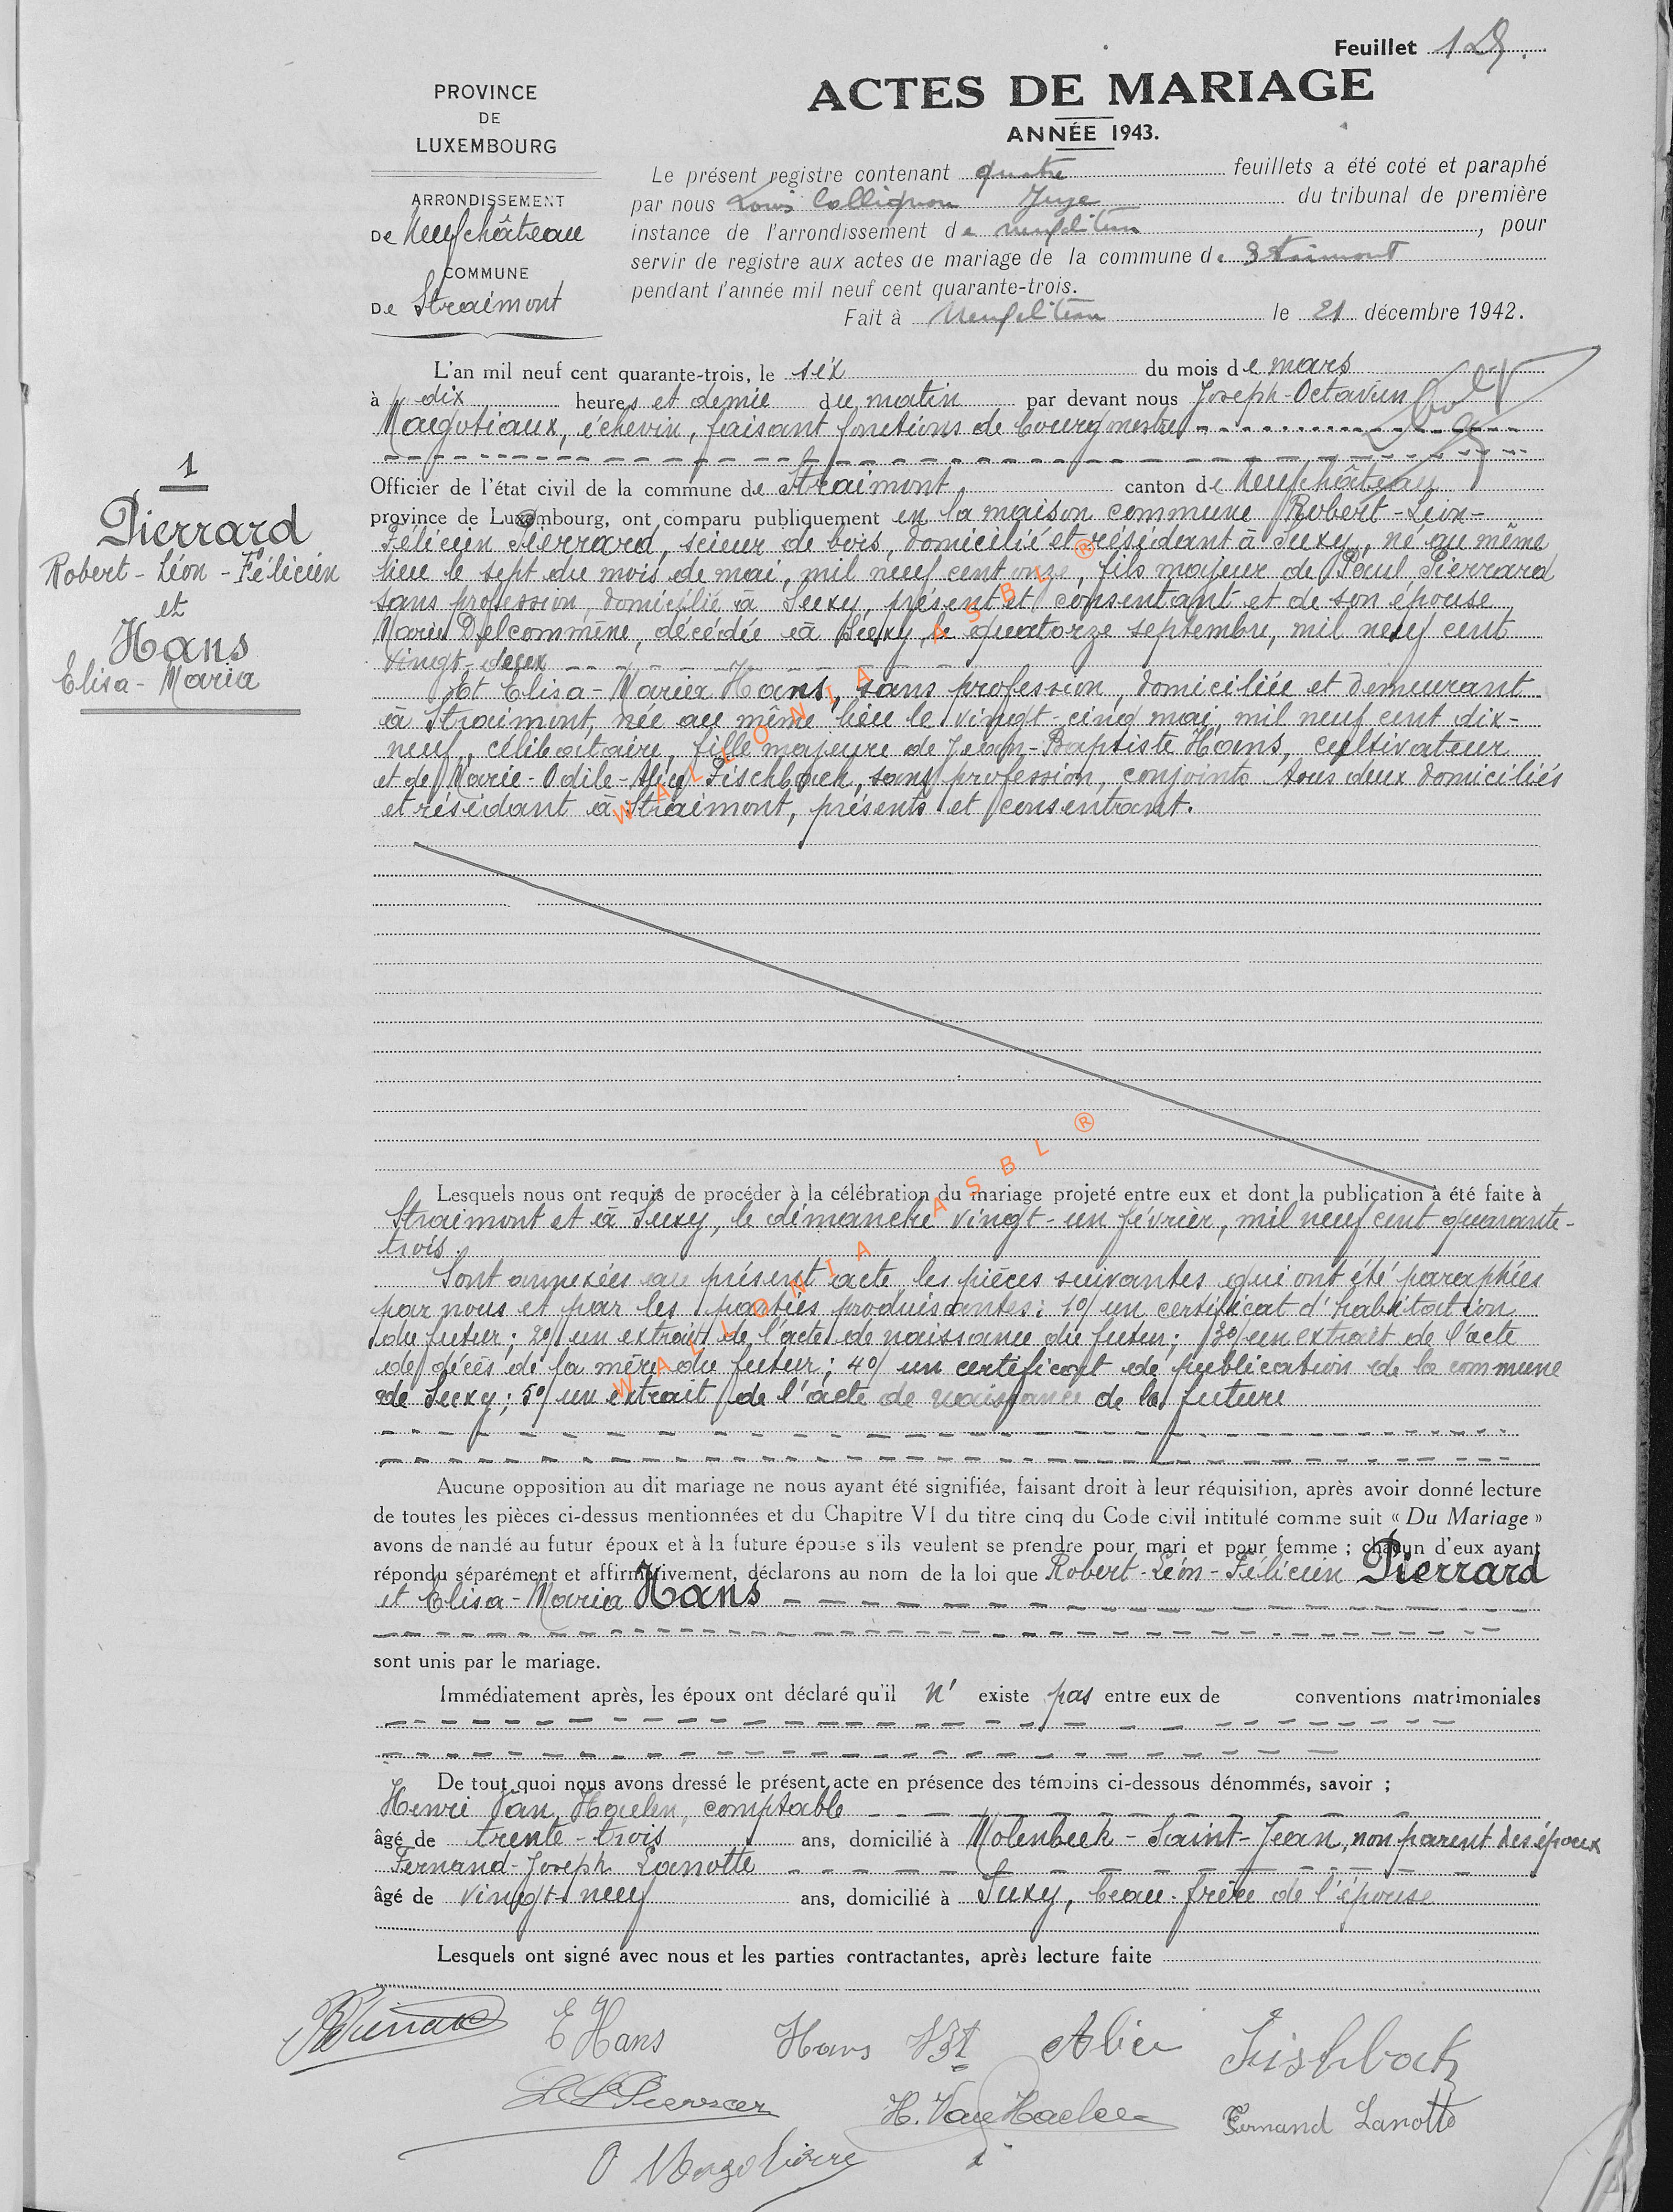 Feuillet 1
ACTES DE MARIAGE
ANNÉE 1943.
PROVINCE
DE
LUXEMBOURG
ARRONDISSEMENT
De Neufchâteau
COMMUNE
De Straimont
Le présent registre contenant quatre feuillets a été coté et paraphé
par nous Louis Collignon Juge du tribunal de première
instance de l'arrondissement de Neufchâteau, pour
servir de registre aux actes de mariage de la commune de Straimont
pendant l'année mil neuf cent quarante-trois.
Fait à Neufchâteau le 21 décembre 1942.
1
Pierrard
Robert-Léon-Félicien
et
Hans
Elisa-Maria
L'an mil neuf cent quarante-trois, le six du mois de mars
à dix heures et demie du matin par devant nous Joseph-Octavien
Magotiaux, échevin, faisant fonctions de bourgmestre
Officier de l'état civil de la commune de Straimont canton de Neufchâteau
province de Luxembourg, ont comparu publiquement en la maison commune Robert-Léon-
Félicien Pierrard, scieur de bois, domicilié et résidant à Suxy, né au même
lieu le sept du mois de mai, mil neuf cent onze, fils majeur de Paul Pierrard
sans profession, domicilié à Suxy, présent et consentant et de son épouse
Marie Delcommène, décédée à Suxy, le quatorze septembre, mil neuf cent
vingt-deux
Et Elisa-Maria Hans, sans profession, domiciliée et demeurant
à Straimont, née au même lieu le vingt-cinq mai, mil neuf cent dix-
neuf, célibataire, fille majeure de Jean-Baptiste Hans, cultivateur
et de Marie-Odile-Alice Fischbach, sans profession, conjoints tous deux domiciliés
et résidant à Straimont, présents et consentant.
Lesquels nous ont requis de procéder à la célébration du mariage projeté entre eux et dont la publication à été faite à
Straimont et à Suxy, le dimanche vingt-un février, mil neuf cent quarante-
trois.
Sont annexées au présent acte, les pièces suivantes qui ont été paraphées
par nous et par les parties produisantes: 1°/ un certificat d'habitation
du futur; 2°/ un extrait de l'acte de naissance du futur; 3°/ un extrait de l'acte
de décès de la mère du futur; 4°/ un certificat de publication de la commune
de Suxy; 5°/ un extrait de l'acte de naissance de la future
Aucune opposition au dit mariage ne nous ayant été signifiée, faisant droit à leur réquisition, après avoir donné lecture
de toutes les pièces ci-dessus mentionnées et du Chapitre VI du titre cinq du Code civil intitulé comme suit « Du Mariage »
avons demandé au futur époux et à la future épouse s'ils veulent se prendre pour mari et pour femme ; chacun d'eux ayant
répondu séparément et affirmativement, déclarons au nom de la loi que Robert-Léon-Félicien Pierrard
et Elisa-Maria Hans
sont unis par le mariage.
Immédiatement après, les époux ont déclaré qu'il n' existe pas entre eux de conventions matrimoniales
De tout quoi nous avons dressé le présent acte en présence des témoins ci-dessous dénommés, savoir ;
Henri Van Haelen, comptable
âgé de trente-trois ans, domicilié à Molenbeek-Saint-Jean, non parent des époux
Fernand-Joseph Lanotte
âgé de vingt-neuf ans, domicilié à Suxy, beau-frère de l'épouse
Lesquels ont signé avec nous et les parties contractantes, après lecture faite
E Hans Hans Alice Fishbach
H. Van Haelen Fernand Lanotte
WALLONIA ASBL ®
WALLONIA ASBL ®